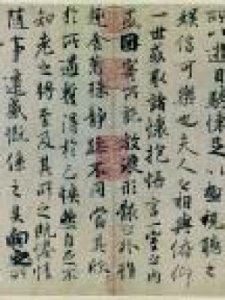 所以遊目騁懷足以極視聽之
娛信可樂也夫人之相與俯仰
一世或取諸懷抱悟言一室之內
或因寄所託放浪形骸之外雖
趣舍萬殊靜躁不同當其欣
於所遇暫得於己怏然自足不
知老之將至及其所之既惓情
隨事遷感慨係之矣向之